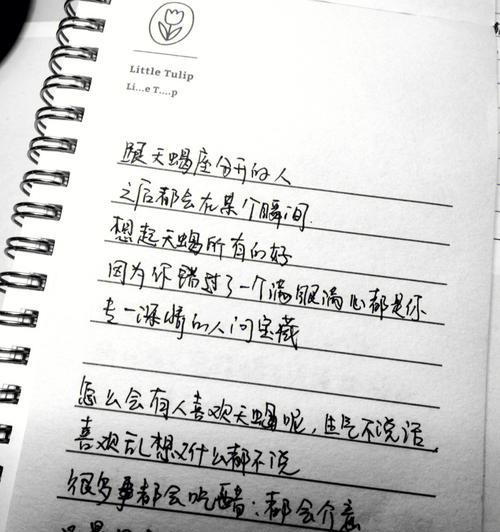 Little Tulip
Li...e T....p
跟天蝎座分开的人
之后都会在某个瞬间.
想起天蝎所有的好
因为你错过了一个满眼满心都是你
专一深情的人间宝藏
怎么会有人喜欢天蝎呢，生气不说话
喜欢乱想又什么都不说
很多事都会吃醋：都会介意